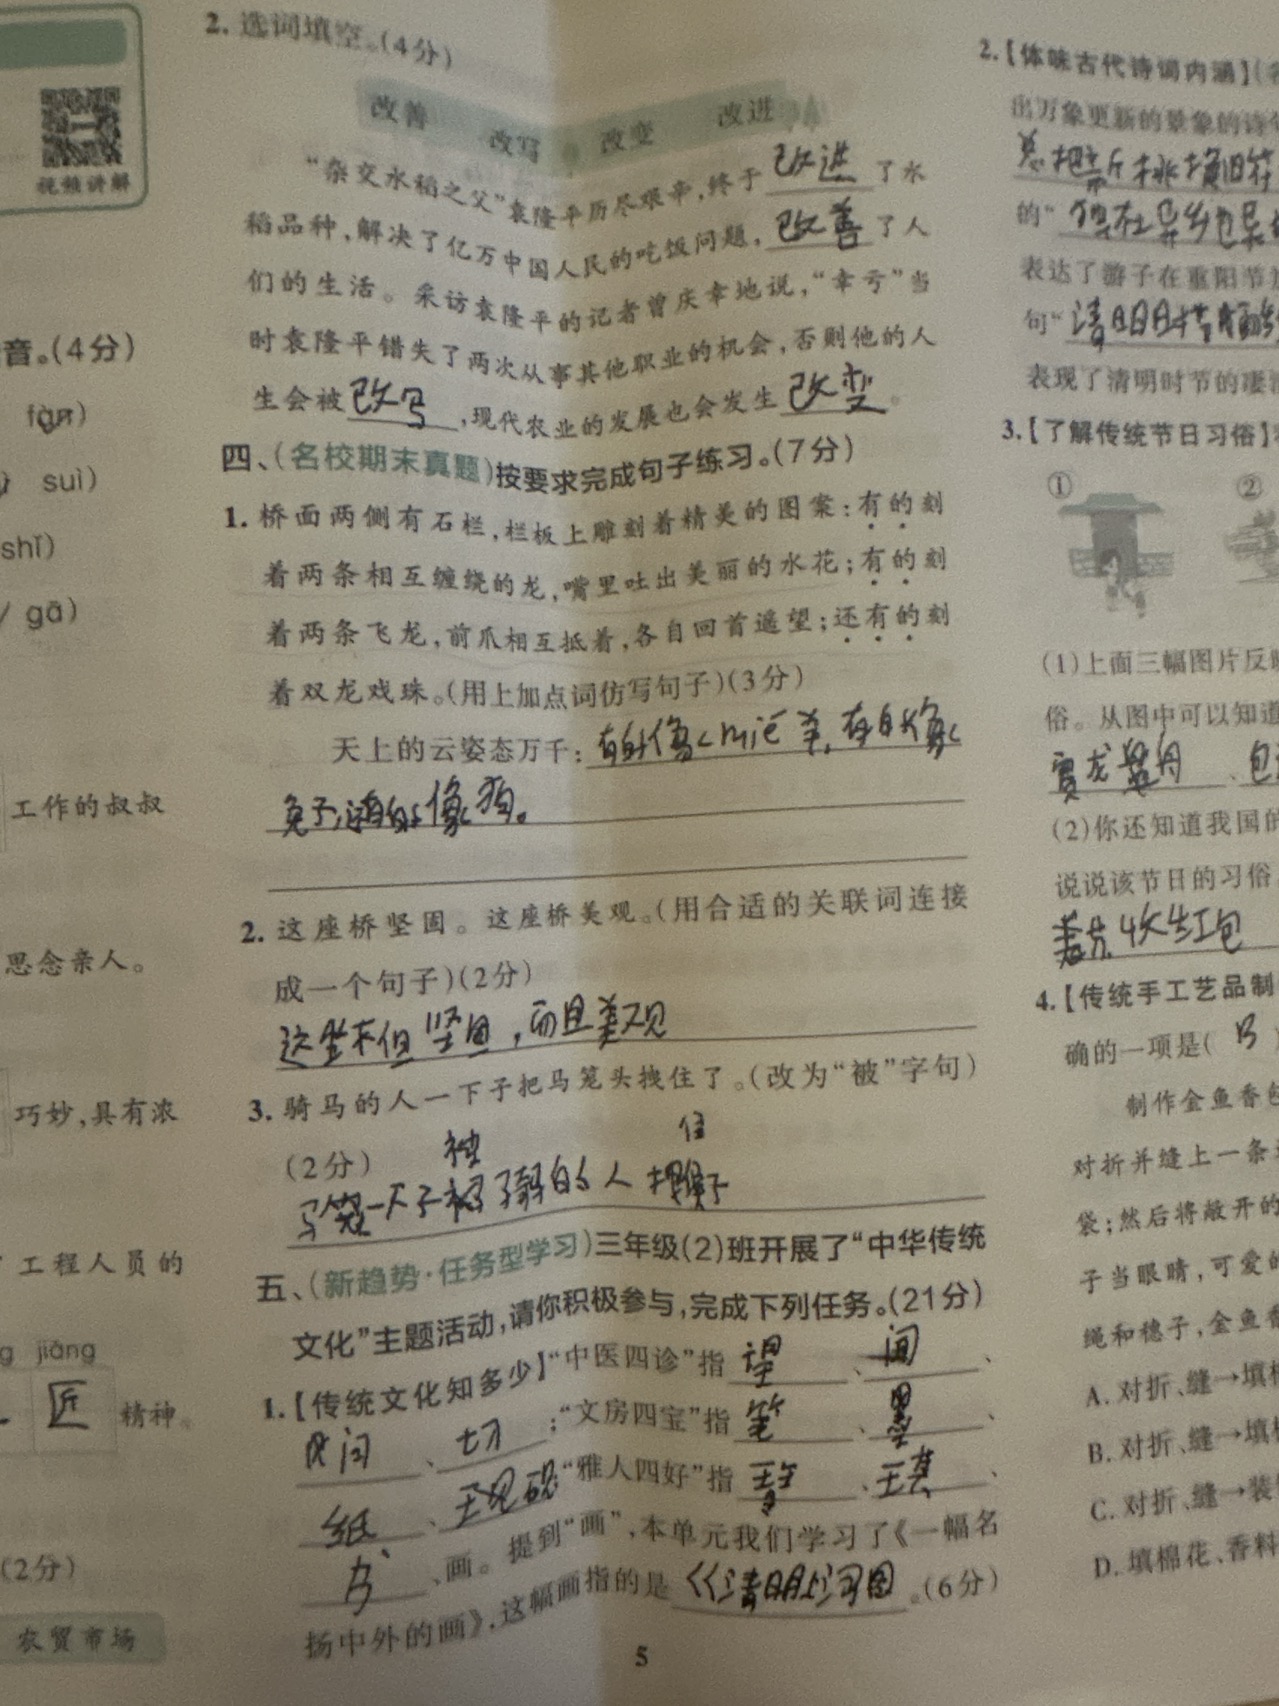 视频讲解
音。(4分)
fàn)
suì)
shǐ)
/ gā)
工作的叔叔
思念亲人。
巧妙,具有浓
工程人员的
jiàng
匠 精神。
(2分)
农贸市场
2. 选词填空。(4分)
改善 改写 改变 改进
“杂交水稻之父”袁隆平历尽艰辛,终于 改进 了水
稻品种,解决了亿万中国人民的吃饭问题, 改善 了人
们的生活。采访袁隆平的记者曾庆幸地说,“幸亏”当
时袁隆平错失了两次从事其他职业的机会,否则他的人
生会被 改写 ,现代农业的发展也会发生 改变 。
四、(名校期末真题)按要求完成句子练习。(7分)
1. 桥面两侧有石栏,栏板上雕刻着精美的图案:有的刻
着两条相互缠绕的龙,嘴里吐出美丽的水花;有的刻
着两条飞龙,前爪相互抵着,各自回首遥望;还有的刻
着双龙戏珠。(用上加点词仿写句子)(3分)
天上的云姿态万千: 有的像 mié 羊,有的像
兔子,有的像狗。
2. 这座桥坚固。这座桥美观。(用合适的关联词连接
成一个句子)(2分)
这坐不但坚固,而且美观
3. 骑马的人一下子把马笼头拽住了。(改为“被”字句)
(2分) 被 住
马笼一下子 的人
五、(新趋势·任务型学习)三年级(2)班开展了“中华传统
文化”主题活动,请你积极参与,完成下列任务。(21分)
1.【传统文化知多少】“中医四诊”指 望 、 闻 、
问 、 切 ;“文房四宝”指 笔 、 墨 、
纸 、 砚 “雅人四好”指 、 、
书 、画。提到“画”,本单元我们学习了《一幅名
扬中外的画》,这幅画指的是 《清明上河图 。(6分)
5
2.【体味古代诗词内涵】(
出万象更新的景象的诗
总把新桃换旧符
的“ 独在异乡
表达了游子在重阳节
句“ 清明时节
表现了清明时节的凄
3.【了解传统节日习俗】
① ②
(1)上面三幅图片反映
俗。从图中可以知道
赛龙舟 、 包
(2)你还知道我国的
说说该节日的习俗。
春节 收红包
4.【传统手工艺品制
确的一项是( B
制作金鱼香包
对折并缝上一条
袋;然后将敞开的
子当眼睛,可爱的
绳和穗子,金鱼香
A. 对折、缝→填棉
B. 对折、缝→填
C. 对折、缝→装
D. 填棉花、香料